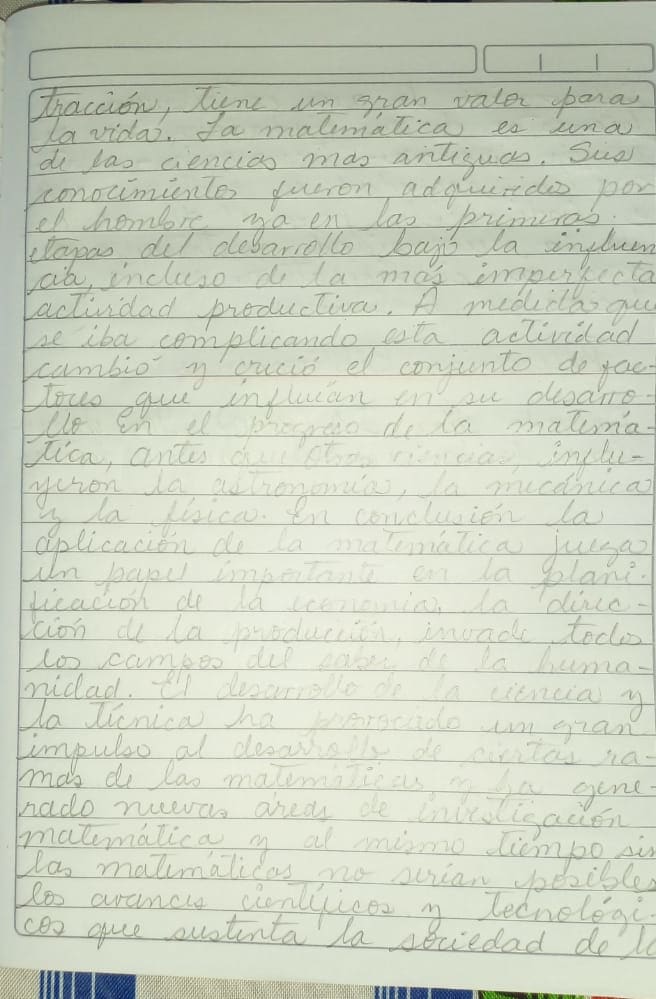 tracción, tiene un gran valor para
la vida. La matemática es una
de las ciencias mas antiguas. Sus
conocimientos fueron adquiridos por
el hombre ya en las primeras
etapas del desarrollo bajo la influen
cia, incluso de la más imperfecta
actividad productiva. A medida que
se iba complicando esta actividad
cambió y creció el conjunto de fac-
tores que influían en su desarro-
llo en el progreso de la matemá-
tica, antes que otras ciencias, influ-
yeron la astronomía, la mecánica
y la física. En conclusión la
aplicación de la matemática juega
un papel importante en la plani-
ficación de la economía, la direc-
ción de la producción, invade todos
los campos del saber de la huma-
nidad. El desarrollo de la ciencia y
la técnica ha provocado un gran
impulso al desarrollo de ciertas ra-
mas de las matemáticas y ha gene-
rado nuevas áreas de investigación
matemática y al mismo tiempo sin
las matemáticas no serían posibles
los avances científicos y tecnológi-
cos que sustenta la sociedad de l